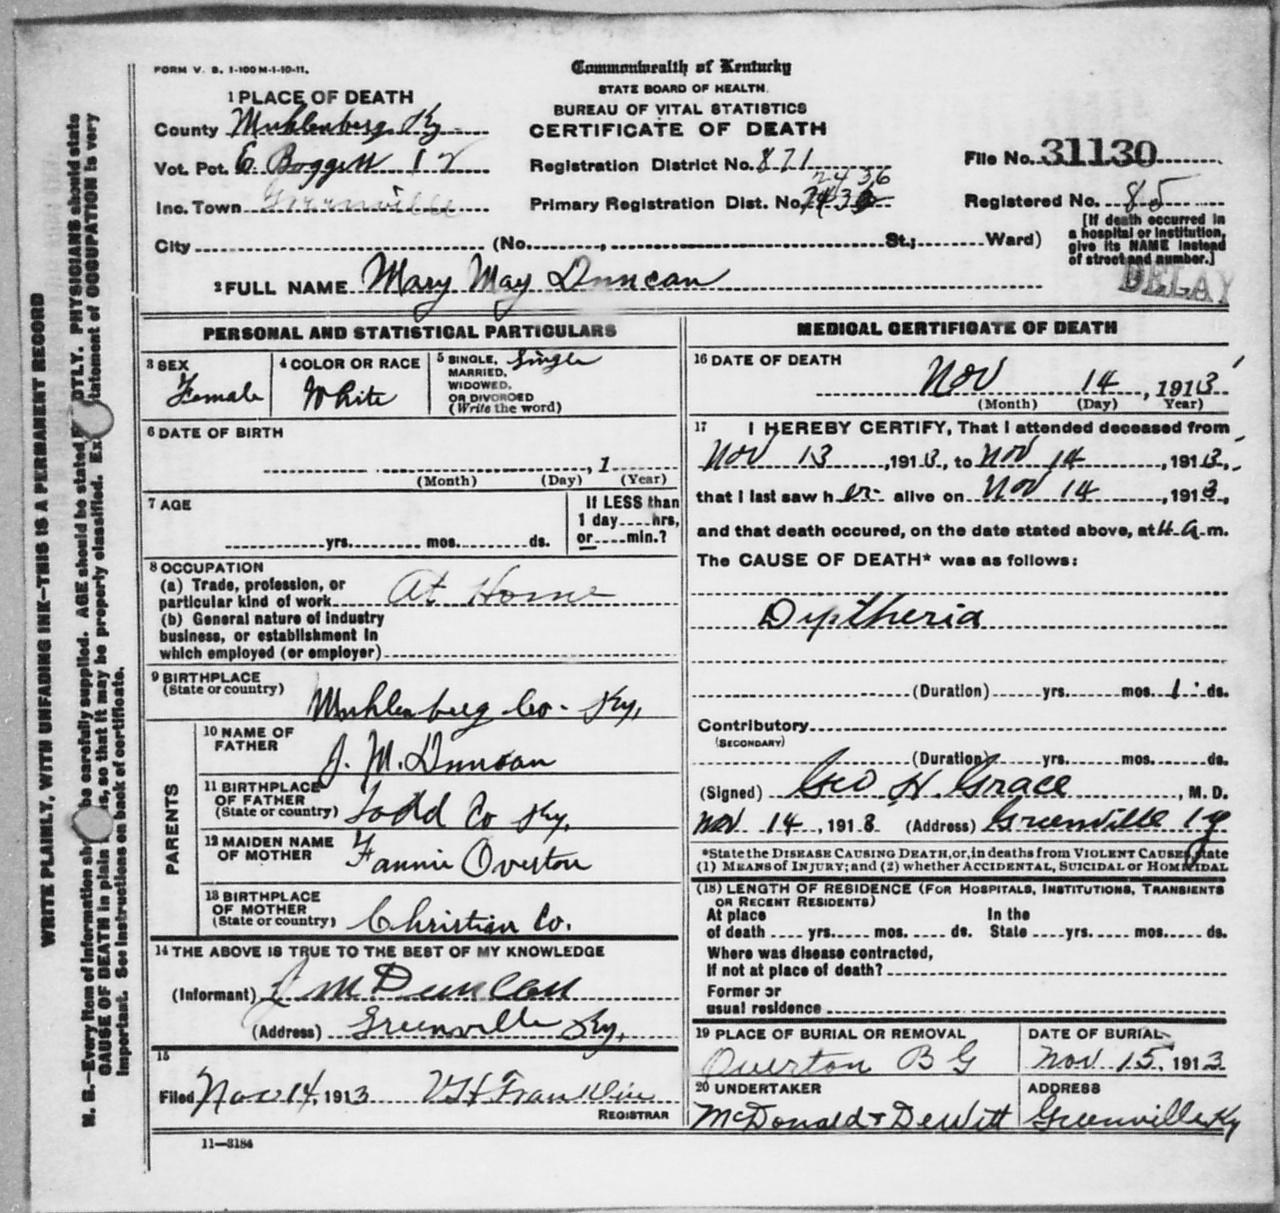 FORM V. S. 1-100M-1-10-11.
Commonwealth of Kentucky
STATE BOARD OF HEALTH.
BUREAU OF VITAL STATISTICS
CERTIFICATE OF DEATH
1 PLACE OF DEATH
County Muhlenberg Ky
Vot. Pct. E. Boggess 12
Inc. Town Greenville
City (No. , St.; Ward)
Registration District No. 871
2436
Primary Registration Dist. No.
File No. 31130
Registered No. 85
[If death occurred in
a hospital or institution,
give its NAME instead
of street and number.]
DELAY
2 FULL NAME Mary May Duncan
PERSONAL AND STATISTICAL PARTICULARS
3 SEX
Female
4 COLOR OR RACE
White
5 SINGLE, Single
MARRIED,
WIDOWED,
OR DIVORCED
(Write the word)
6 DATE OF BIRTH
, 1
(Month) (Day) (Year)
7 AGE
yrs. mos. ds.
If LESS than
1 day....hrs,
or....min.?
8 OCCUPATION
(a) Trade, profession, or
particular kind of work At Home
(b) General nature of industry
business, or establishment in
which employed (or employer)
9 BIRTHPLACE
(State or country)
Muhlenberg Co. Ky,
PARENTS
10 NAME OF
FATHER
J. M. Duncan
11 BIRTHPLACE
OF FATHER
(State or country) Todd Co Ky.
12 MAIDEN NAME
OF MOTHER Fannie Overton
13 BIRTHPLACE
OF MOTHER
(State or country) Christian Co.
14 THE ABOVE IS TRUE TO THE BEST OF MY KNOWLEDGE
(Informant) J M Duncan
(Address) Greenville Ky,
15
Filed Nov 14, 1913 V H Franklin
REGISTRAR
11—3184
MEDICAL CERTIFICATE OF DEATH
16 DATE OF DEATH
Nov 14, 1913
(Month) (Day) Year)
17 I HEREBY CERTIFY, That I attended deceased from
Nov 13, 1913, to Nov 14, 1913,
that I last saw her alive on Nov 14, 1913,
and that death occured, on the date stated above, at 4 a.m.
The CAUSE OF DEATH* was as follows:
Diptheria
(Duration) yrs. mos. 1 ds.
Contributory
(SECONDARY)
(Duration) yrs. mos. ds.
(Signed) Geo H Grace, M. D.
Nov 14, 1913 (Address) Greenville Ky
*State the DISEASE CAUSING DEATH, or, in deaths from VIOLENT CAUSES, state
(1) MEANS of INJURY; and (2) whether ACCIDENTAL, SUICIDAL or HOMICIDAL
(18) LENGTH OF RESIDENCE (FOR HOSPITALS, INSTITUTIONS, TRANSIENTS
OR RECENT RESIDENTS)
At place
of death .... yrs. .... mos. .... ds.
In the
State .... yrs. .... mos. .... ds.
Where was disease contracted,
If not at place of death?
Former or
usual residence
19 PLACE OF BURIAL OR REMOVAL
Overton B G
DATE OF BURIAL
Nov. 15, 1913
20 UNDERTAKER
McDonald & DeWitt
ADDRESS
Greenville Ky
WRITE PLAINLY, WITH UNFADING INK—THIS IS A PERMANENT RECORD
N. B.—Every item of information sh be carefully supplied. AGE should be stated OTLY. PHYSICIANS should state
CAUSE OF DEATH in plain s, so that it may be properly classified. Ex tatement of OCCUPATION is very
important. See instructions on back of certificate.